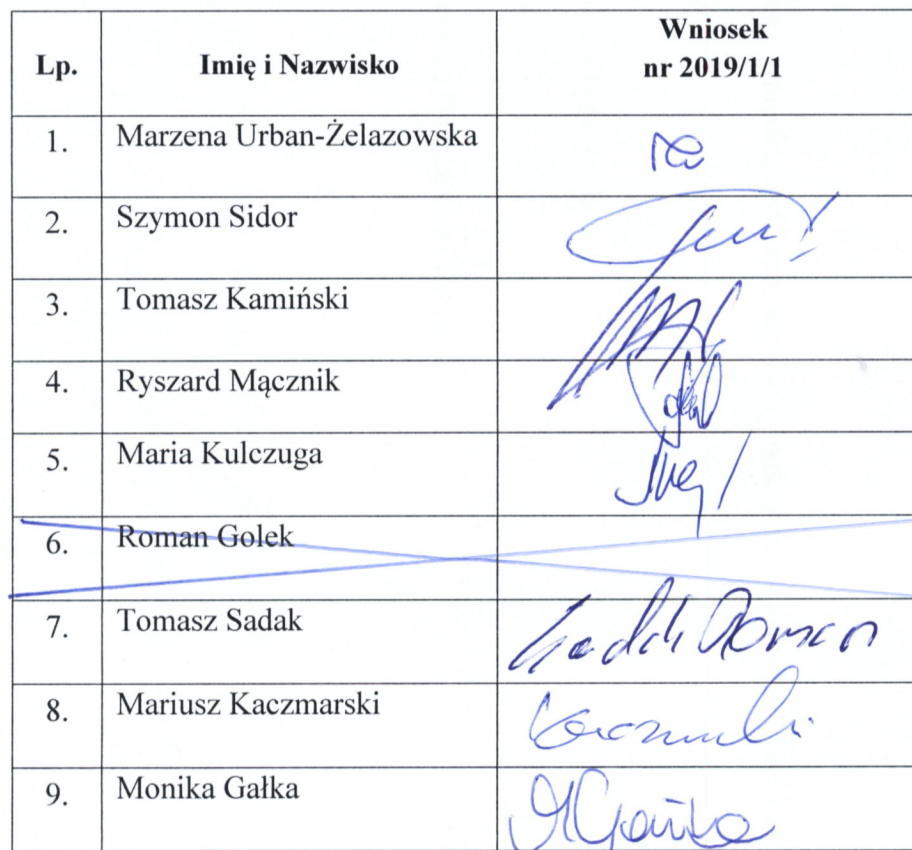 Lp. Imię i Nazwisko Wniosek
nr 2019/1/1
1. Marzena Urban-Żelazowska
2. Szymon Sidor
3. Tomasz Kamiński
4. Ryszard Mącznik
5. Maria Kulczuga
6. Roman Golek
7. Tomasz Sadak Roman
8. Mariusz Kaczmarski
9. Monika Gałka